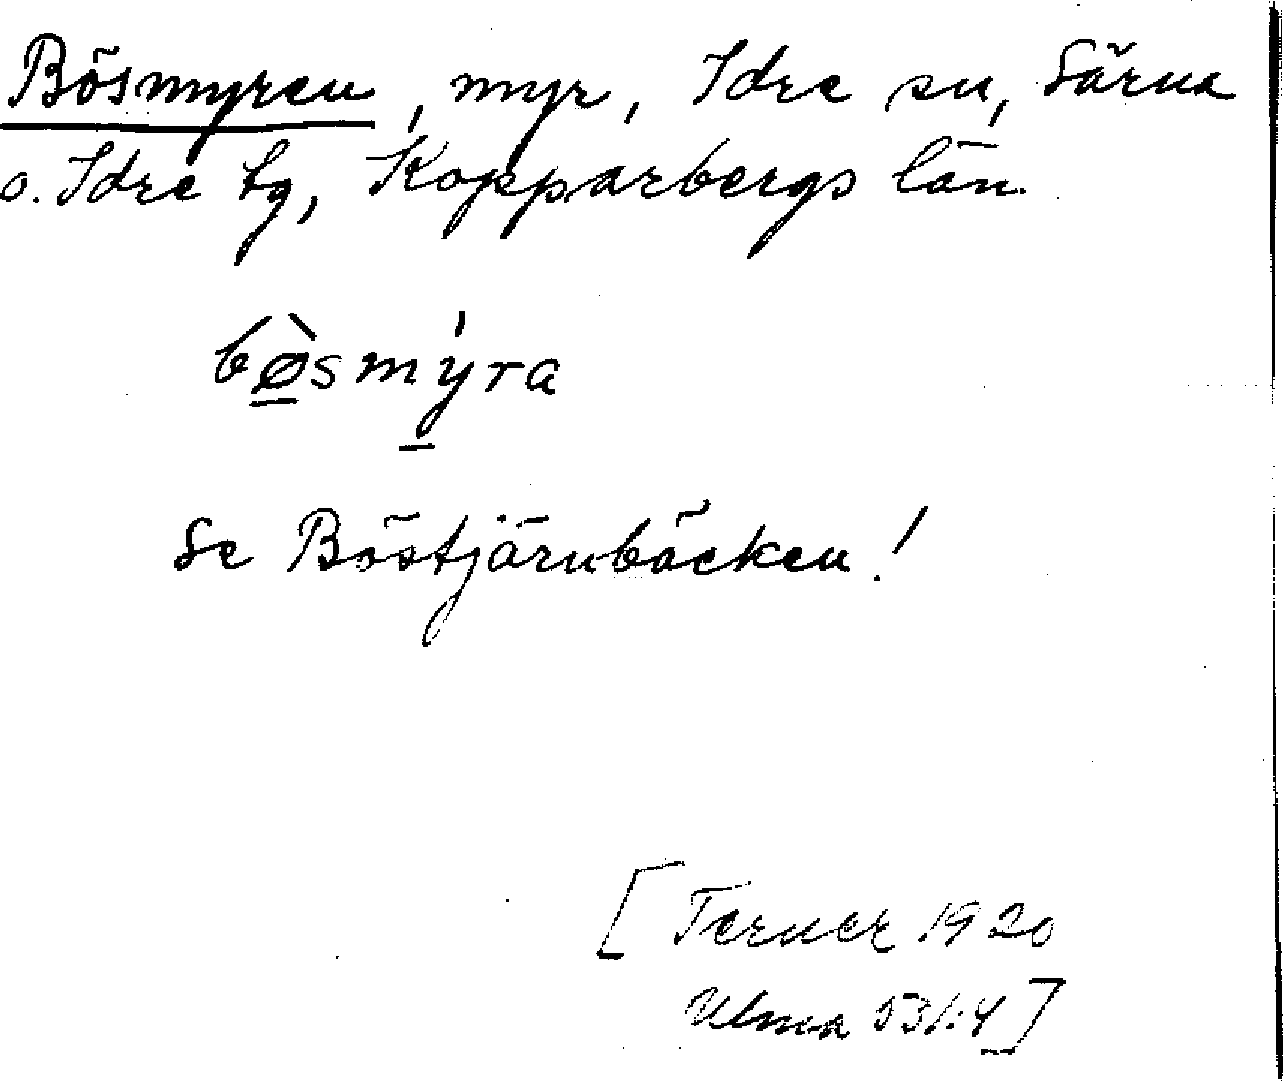 Bösmyren, myr, Idre sn, Särna
o. Idre tg, Kopparbergs län.
bø̀smy̍ra
Se Böstjärnbäcken!
[Terner 1920
Ulma 531:4]